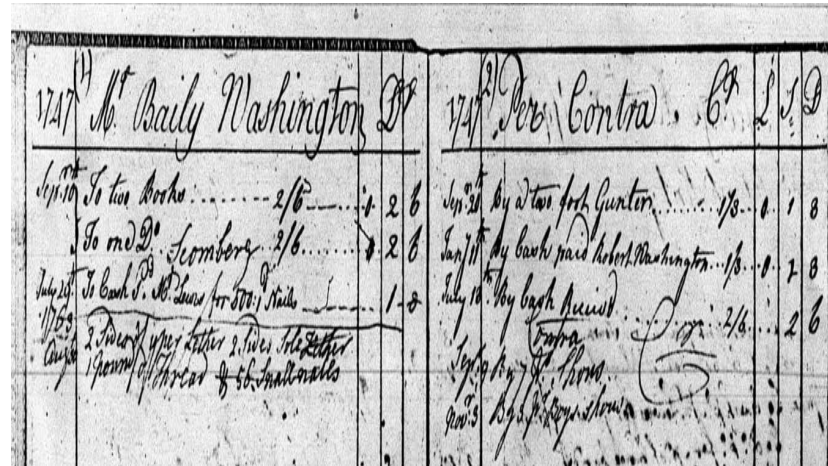 1747 (1) Mr Baily Washington Dr
Sepr. 10th To two Books 2/6 0 2 6
To one Do. Scomberg 2/6 0 2 6
July 29th To Cash Pd. Mr. Lewis for 500 Nails 1 8
1763
2 Sides of uper Lether 2 Sides Sole Lether
1 pound of Thread & 56 Small nalls
1747 (2) Per Contra Cr L S D
Sepr. 20th By a two foot Gunter 1/8 0 1 8
Jany 11th By Cash paid Robert Washington 1/8 0 1 8
July 18th By Cash Receivd 2/6 2 6
Contra Cr
Sepr. 9 By 7 pr. Shous
Novr. 3 By 3 pr. Boys shous